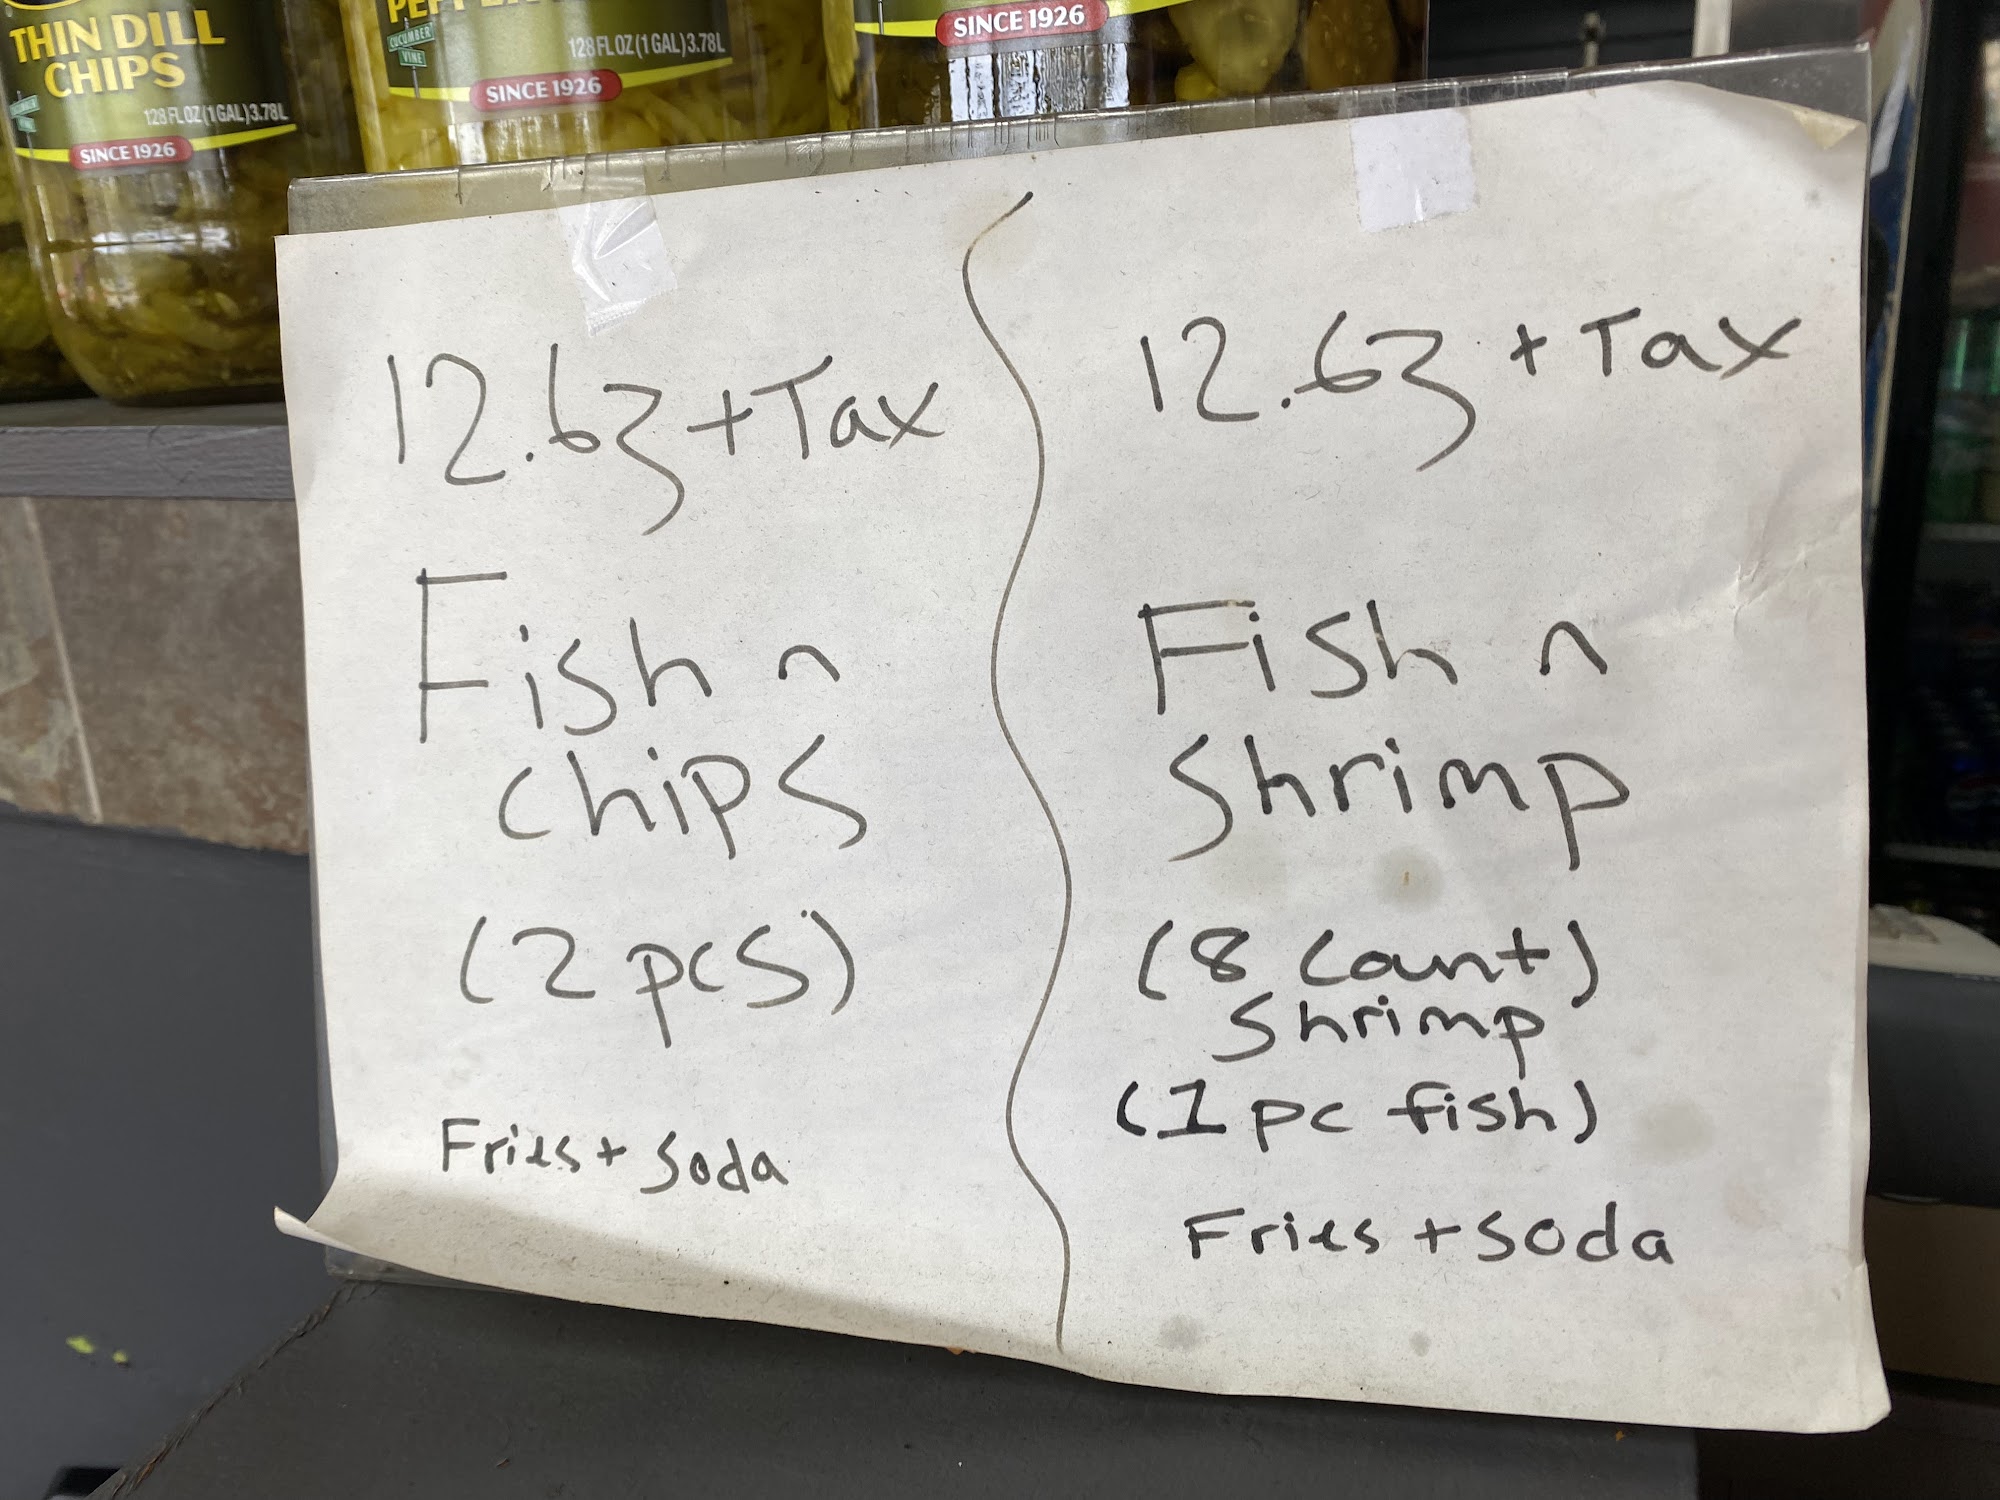 THIN DILL
CHIPS
128 FL OZ (1 GAL) 3.78L
SINCE 1926
CUCUMBER
VINE
128 FL OZ (1 GAL) 3.78L
SINCE 1926
SINCE 1926
12.63 + Tax
Fish n
chips
(2 pcs)
Fries + Soda
12.63 + Tax
Fish n
Shrimp
(8 count)
Shrimp
(1 pc fish)
Fries + Soda